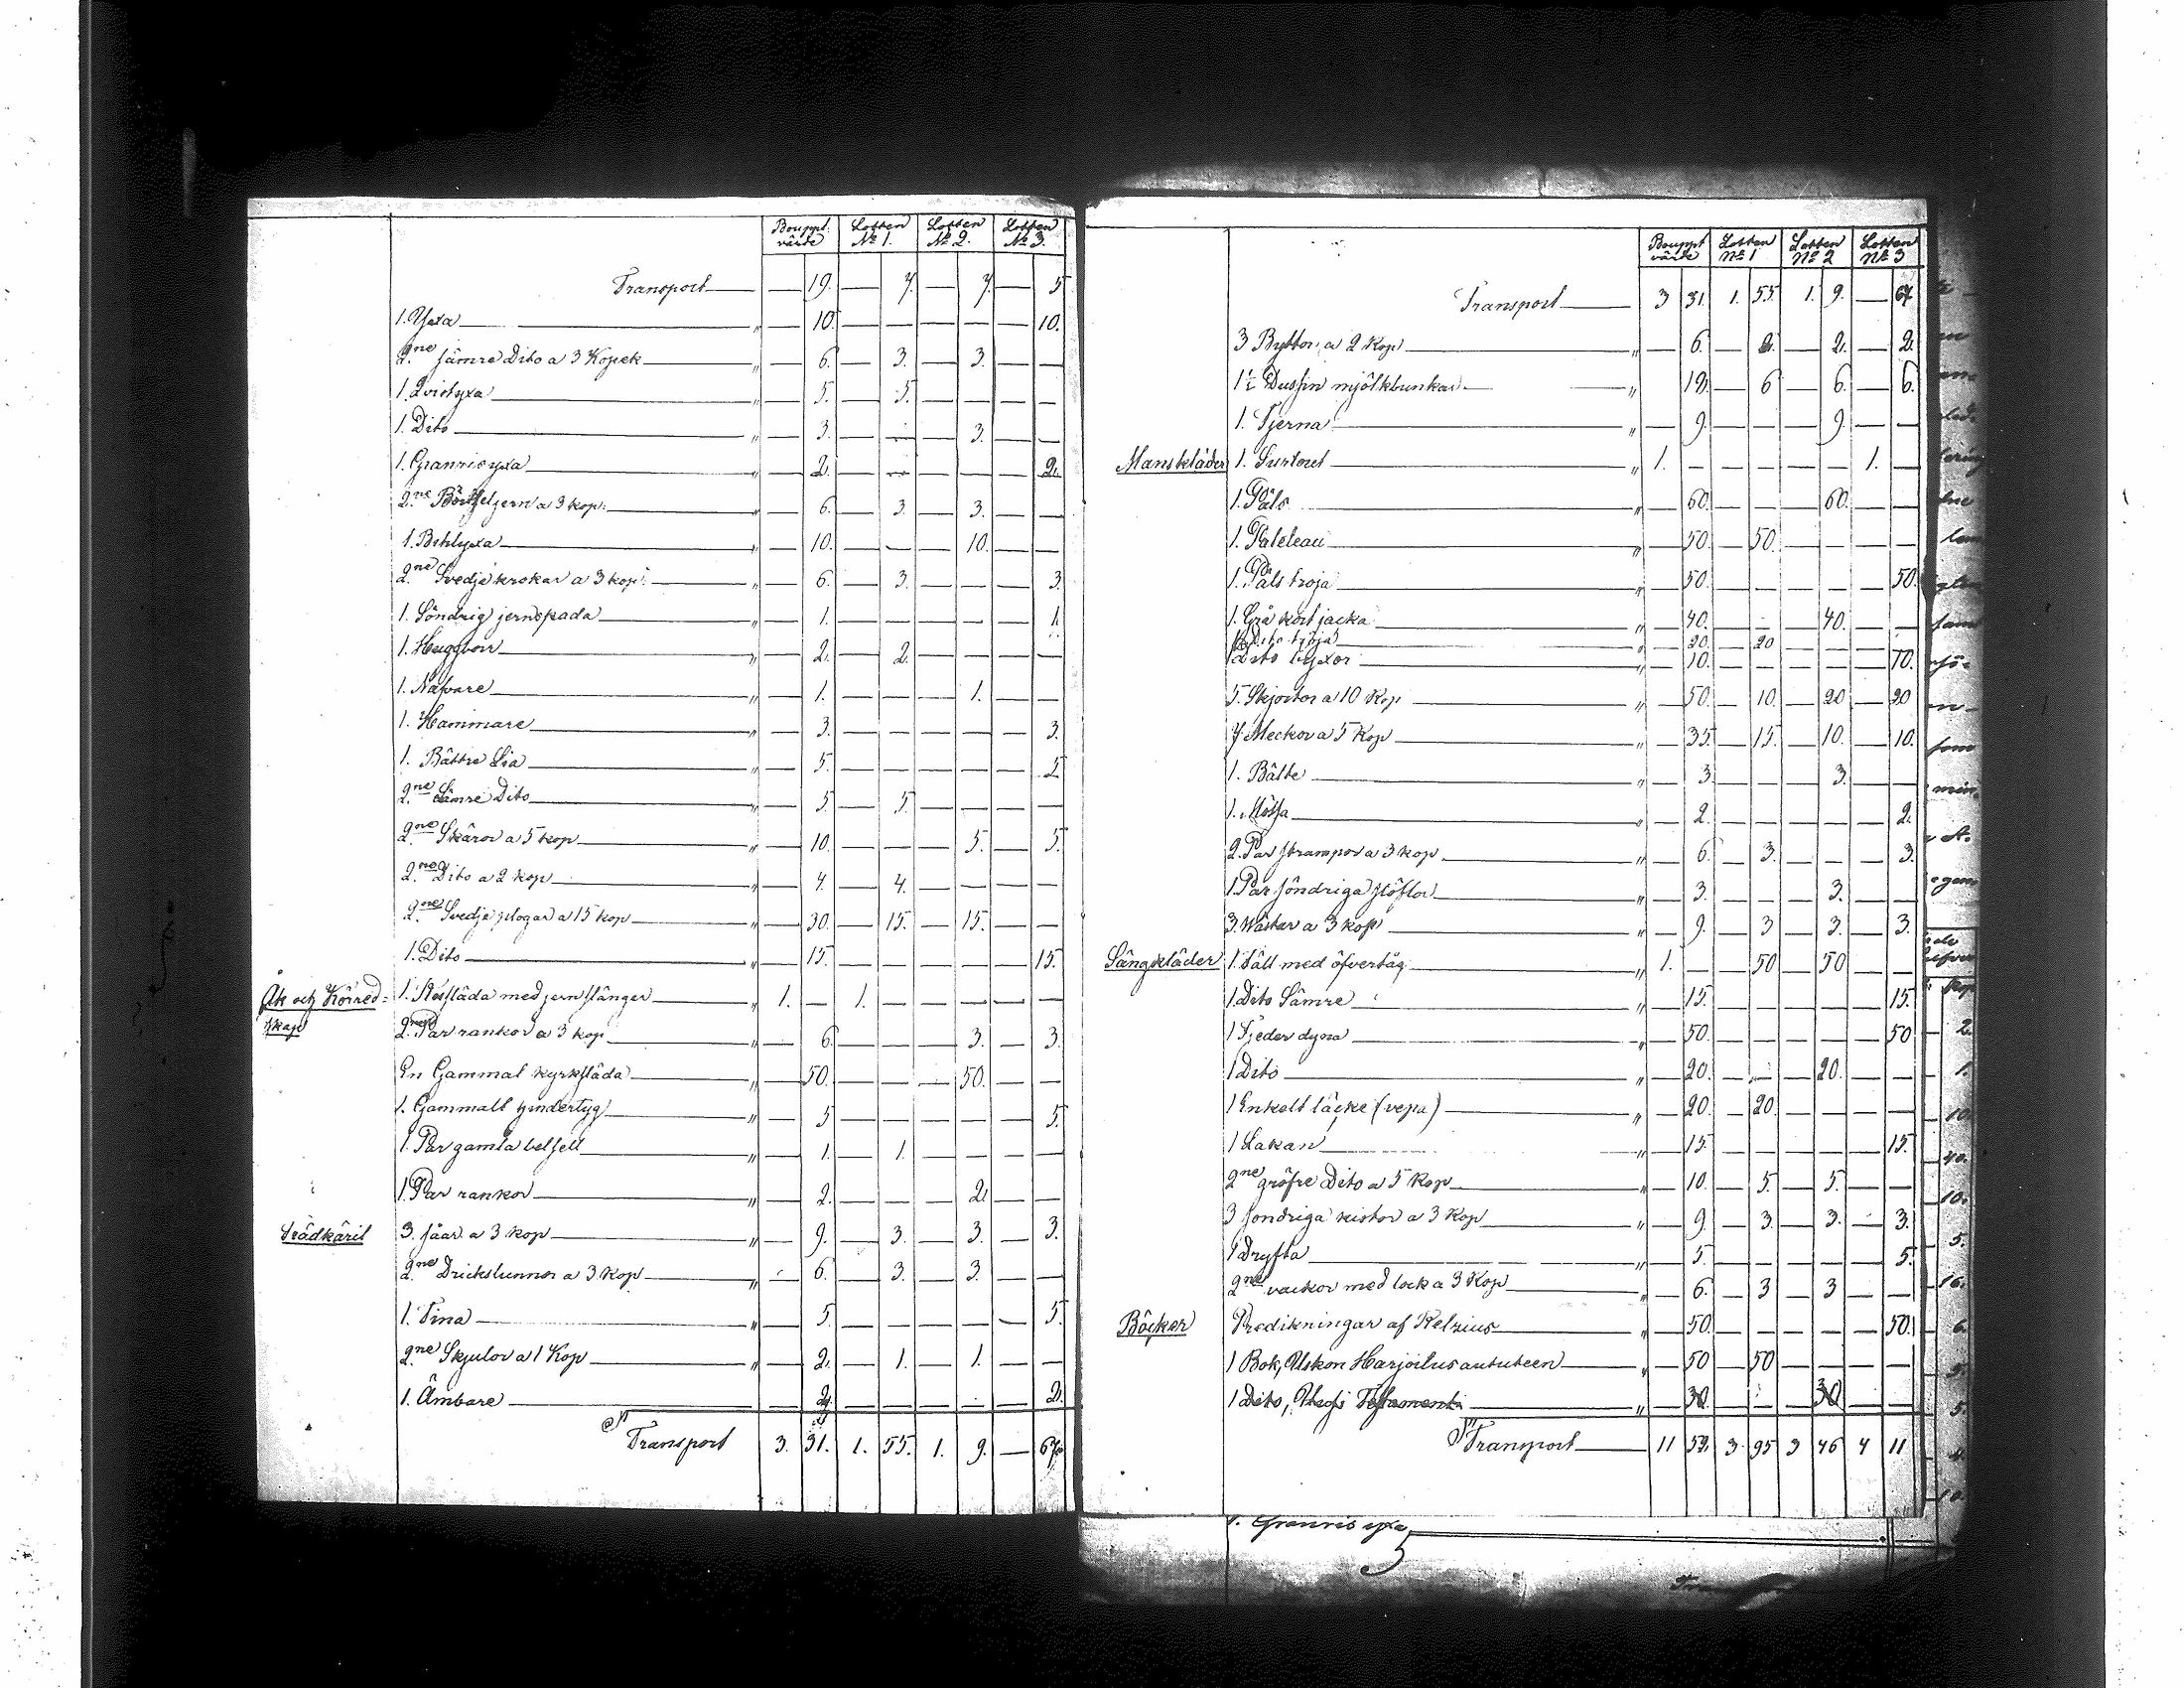 Bouppt. Lotten Lotten Lotten
värde № 1. № 2. № 3.
Transport — 19. — 7. — 7. — 5
1. Yxa " — 10. — — — — — 10.
2.ne sämre Dito a 3 Kopek " — 6. — 3. — 3. — —
1. Qvistyxa " — 5. — 5. — — — —
1. Dito " — 3. — — — 3. — —
1. Granrisyxa " — 2. — — — — — 2.
2.ne a 3 kop: " — 6. — 3. — 3. — —
1. Bihlyxa " — 10. — — — 10. — —
2.ne Svedje krokar a 3 kop: " — 6. — 3. — — — 3.
1. Söndrig jernspada " — 1. — — — — — 1.
1. Huggborr " — 2. — 2. — — — —
1. Nafvare " — 1. — — — 1. — —
1. Hammare " — 3. — — — — — 3.
1. Bättre Lia " — 5. — — — — — 5
2.ne Sämre Dito " — 5 — 5. — — — —
2.ne Skäror a 5 kop " — 10. — — — 5. — 5.
2.ne Dito a 2 kop " — 4. — 4. — — — —
2.ne Svedje plogar a 15 kop " — 30. — 15. — 15. — —
1. Dito " — 15. — — — — — 15.
Åk och Körred= 1. släda med jern stänger " 1. — 1. — — — — —
skap 2.ne Par rankor a 3 kop " — 6. — — — 3. — 3.
En Gammal kyrksläda " — 50. — — — 50. — —
1. Gammalt hindertyg " — 5 — — — — — 5.
1. Par gamla betsell " — 1. — 1. — — — —
1. Par rankor " — 2. — — — 2. — —
Trädkäril 3. såar a 3 kop " — 9. — 3. — 3. — 3.
2.ne Drickstunnor a 3 Kop " — 6. — 3. — 3. — —
1. Tina " — 5. — — — — — 5.
2.ne Skjulor a 1 Kop " — 2. — 1. — 1. — —
1. Ämbare " — 2. — — — — — 2.
Transport 3. 31. 1. 55. 1. 9. — 67.
Bouppt Lotten Lotten Lotten
värde № 1 № 2 № 3
Transport 3 31. 1. 55. 1. 9. — 67
3 Byttor a 2 Kop " — 6. — 2. — 2. — 2.
1½ Dussin mjölkbunkar " — 18. — 6 — 6. — 6.
1. Tjerna " — 9. — — — 9. — —
Manskläder 1. Surtout " 1. — — — — — 1. —
1. Päls " — 60. — — — 60. — —
1. Paleteau " — 50. — 50. — — — —
1. Päls troja " — 50. — — — — — 50.
1. Grå kort jacka " — 40. — — — 40. — —
Dito tröja " — 20. — 20 — — — —
Dito byxor " — 10. — — — — — 10.
5. Skjortor a 10 Kop " — 50. — 10. — 20 — 20
7. Meckor a 5 Kop " — 35. — 15. — 10. — 10.
1. Bälte " — 3. — — — 3. — —
1. Mössa " — 2. — — — — — 2.
2. Par strumpor a 3 kop " — 6. — 3. — — — 3.
1. Par söndriga stöflor " — 3. — — — 3. — —
3. Wästar a 3 kop " — 9. — 3 — 3. — 3.
Sängkläder 1. Fäll med öfvertåg " 1. — — 50 — 50 — —
1. Dito Sämre " — 15. — — — — — 15.
1 Fjeder dyna " — 50. — — — — — 50
1 Dito " — 20. — — — 20. — —
1 Enkelt täcke (vepa) " — 20. — 20. — — — —
1 Lakan " — 15. — — — — — 15.
2ne gröfre Dito a 5 Kop " — 10. — 5. — 5. — —
3 söndriga kistor a 3 Kop " — 9. — 3. — 3. — 3.
1 Dryfta " — 5. — — — — — 5.
2ne vackor med lock a 3 Kop " — 6. — 3 — 3 — —
Böcker Predikningar af Relzius " — 50. — — — — — 50.
1 Bok, Uskon Harjoitus autuuteen " — 50 — 50 — — — —
1 Dito, Testamenti " — 30. — — — 30 — —
Transport 11 59. 3 95 3 46 4 11
1. Granris yxa